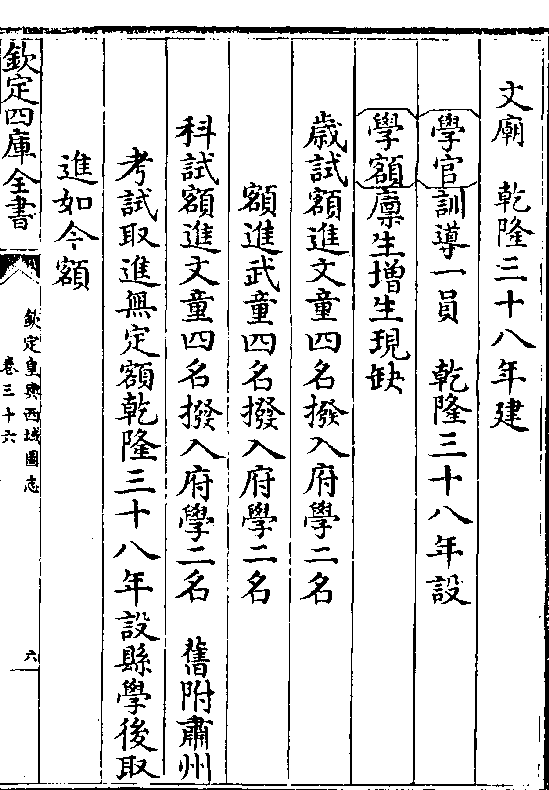 文廟　乾隆三十八年建
學官訓導一員　乾隆三十八年設
學額廩生增生現缺
歲試額進文童四名撥入府學二名
額進武童四名撥入府學二名
科試額進文童四名撥入府學二名　舊附肅州
考試取進無定額乾隆三十八年設縣學後取
進如今額
欽定四庫全書
欽定皇輿西域圖志
卷三十六
六